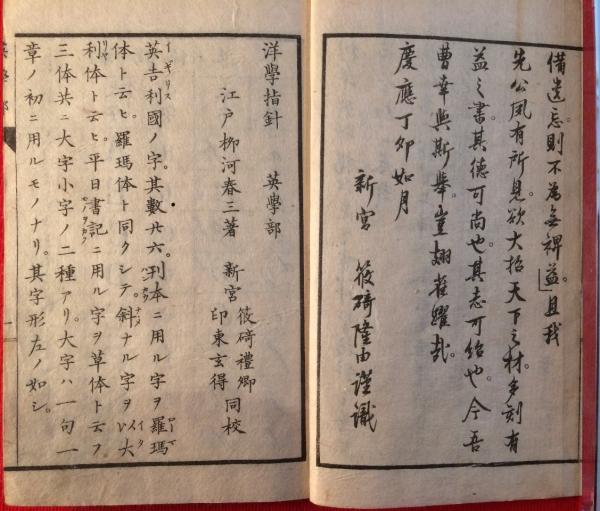 備遺忘則不為無裨益且我
先公夙有所見欲大招天下之材多刻有
益之書其德可尚也其志可紹也今吾
曹幸與斯擧豈翅雀躍哉
慶應丁卯如月
新宮　筱碕隆由謹識
洋學指針　英學部
江戸柳河春三著　新宮　筱碕禮卿　同校
印東玄得
英吉利國ノ字其數廿六刊本ニ用ル字ヲ羅瑪
体ト云ヒ羅瑪体ト同クシテ斜ナル字ヲ以大
利体ト云ヒ平日書記ニ用ル字ヲ草体ト云フ
三体共ニ大字小字ノ二種アリ大字ハ一句一
章ノ初ニ用ルモノナリ其字形左ノ如シ